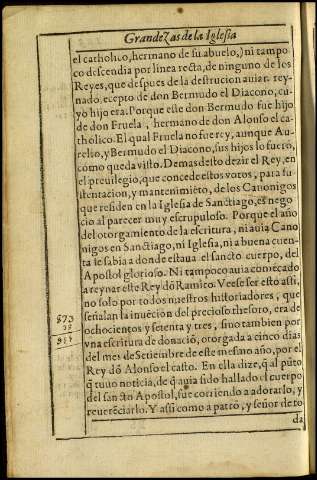 Grandezas de la Iglesia
el catholico, hermano de su abuelo,) ni tampo
co descendia por linea recta, de ninguno de los
Reyes, que despues de la destrucion auiã rey-
nado, ecepto de don Bermudo el Diacono, cu
yo hijo era. Porque este don Bermudo fue hijo
de don Fruela, hermano de don Alonso el ca-
tholico. El qual Fruela no fue rey, aunque Au-
relio, y Bermudo el Diacono, sus hijos lo fuerõ,
como queda visto. Demas desto dezir el Rey, en
el preuilegio, que concede estos votos, para su-
stentacion, y mantenimiẽto, de los Canonigos
que residen en la Iglesia de Sanctiago, es nego
cio al parecer muy escrupuloso. Porque el año
del otorgamiento de la escritura, ni auia Cano
nigos en Sanctiago, ni Iglesia, ni a buena cuen-
ta se sabia a donde estaua el sancto cuerpo, del
Apostol glorioso. Ni tampoco auia comẽçado
a reynar este Rey dõ Ramiro. Veese ser esto assi,
no solo por todos nuestros historiadores, que
señalan la inuẽcion del precioso thesoro, era de
ochocientos y setenta y tres, sino tambien por
vna escritura de donaciõ, otorgada a cinco dias
del mes de Setiembre de este mesmo año, por el
Rey dõ Alonso el casto. En ella dize, q̃ al pũto
q̃ tuuo noticia, de q̃ auia sido hallado el cuerpo
del sancto Apostol, fue corriendo a adorarlo, y
reuerẽciarlo. Y assi como a patrõ, y señor de to
da
873
38